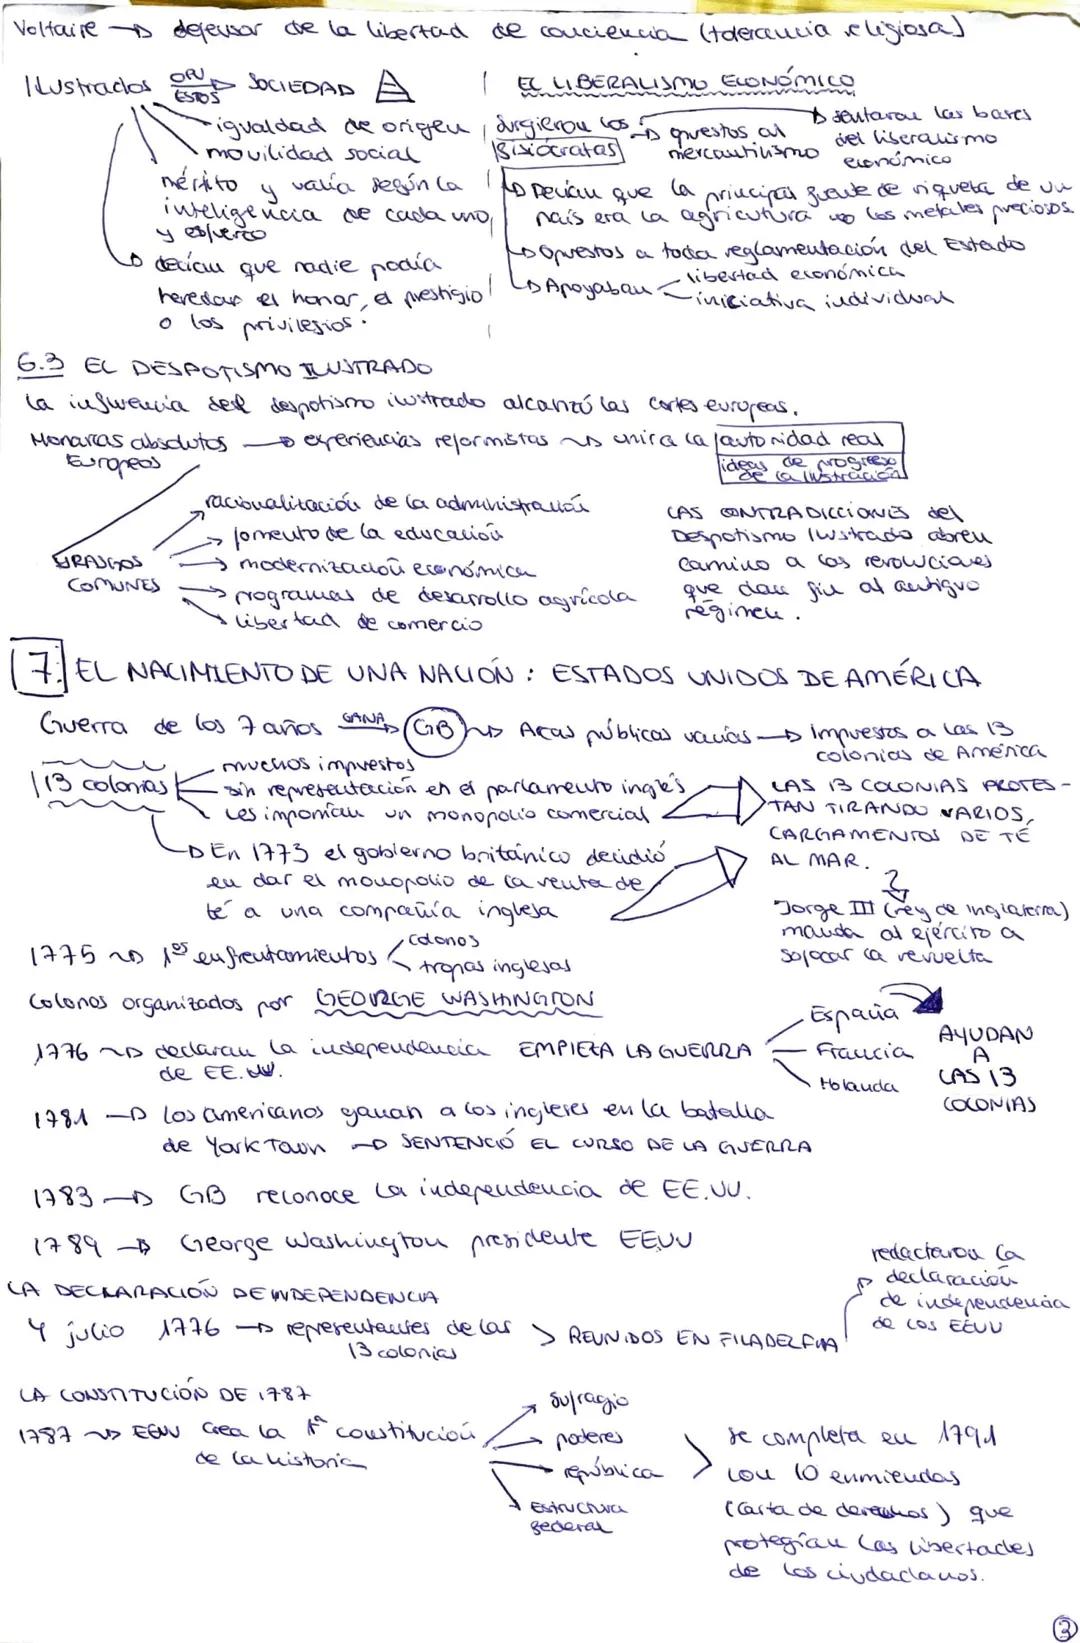 Voltaire → defensor de la libertad de conciencia (tolerancia religiosa)
Ilustrados OPU ESTOS → SOCIEDAD
- igualdad de origen
movilidad social
mérito y valía según la
inteligencia de cada uno,
y esfuerzo
decían que nadie podía
heredar el honor, el prestigio
o los privilegios.
EL LIBERALISMO ECONÓMICO
Surgieron los fisiócratas → opuestos al mercantilismo
→ sentaron las bases
del liberalismo
económico
→ Decían que la principal fuente de riqueza de un
país era la agricultura no los metales preciosos.
→ Opuestos a toda reglamentación del Estado
→ Apoyaban - libertad económica
- iniciativa individual
6.3 EL DESPOTISMO ILUSTRADO
La influencia del despotismo ilustrado alcanzó las cortes europeas.
Monarcas absolutos → experiencias reformistas → unir a la autoridad real
Europeos
ideas de progreso
de la Ilustración
RASGOS
COMUNES
→ racionalización de la administración
→ fomento de la educación
→ modernización económica
→ programas de desarrollo agrícola
→ libertad de comercio
LAS CONTRADICCIONES del
Despotismo Ilustrado abren
camino a las revoluciones
que dan fin al antiguo
régimen.
7. EL NACIMIENTO DE UNA NACIÓN: ESTADOS UNIDOS DE AMÉRICA
Guerra de los 7 años GANA → GB → Arcas públicas vacías → Impuestos a las 13
colonias de América
13 colonias
- muchos impuestos
- sin representación en el parlamento inglés
- les imponían un monopolio comercial
→ En 1773 el gobierno británico decidió
en dar el monopolio de la venta de
té a una compañía inglesa
LAS 13 COLONIAS PROTES-
TAN TIRANDO VARIOS
CARGAMENTOS DE TÉ
AL MAR.
Jorge III (rey de Inglaterra)
manda al ejército a
sofocar la revuelta
1775 → 1os enfrentamientos
colonos
tropas inglesas
Colonos organizados por GEORGE WASHINGTON
1776 → declaran la independencia EMPIEZA LA GUERRA
de EE.UU.
España
- Francia
Holanda
AYUDAN
A
LAS 13
COLONIAS
1781 → Los americanos ganan a los ingleses en la batalla
de York Town → SENTENCIÓ EL CURSO DE LA GUERRA
1783 → GB reconoce la independencia de EE.UU.
1789 → George Washington presidente EEUU
LA DECLARACIÓN DE INDEPENDENCIA
4 julio 1776 → representantes de las
13 colonias
> REUNIDOS EN FILADELFIA
redactaron la
declaración
de independencia
de los EEUU
LA CONSTITUCIÓN DE 1787
1787 → EEUU crea la 1ª constitución
de la historia
→ sufragio
→ poderes
→ república
→ Estructura
federal
Se completa en 1791
con 10 enmiendas
(Carta de derechos) que
protegían las libertades
de los ciudadanos.
3